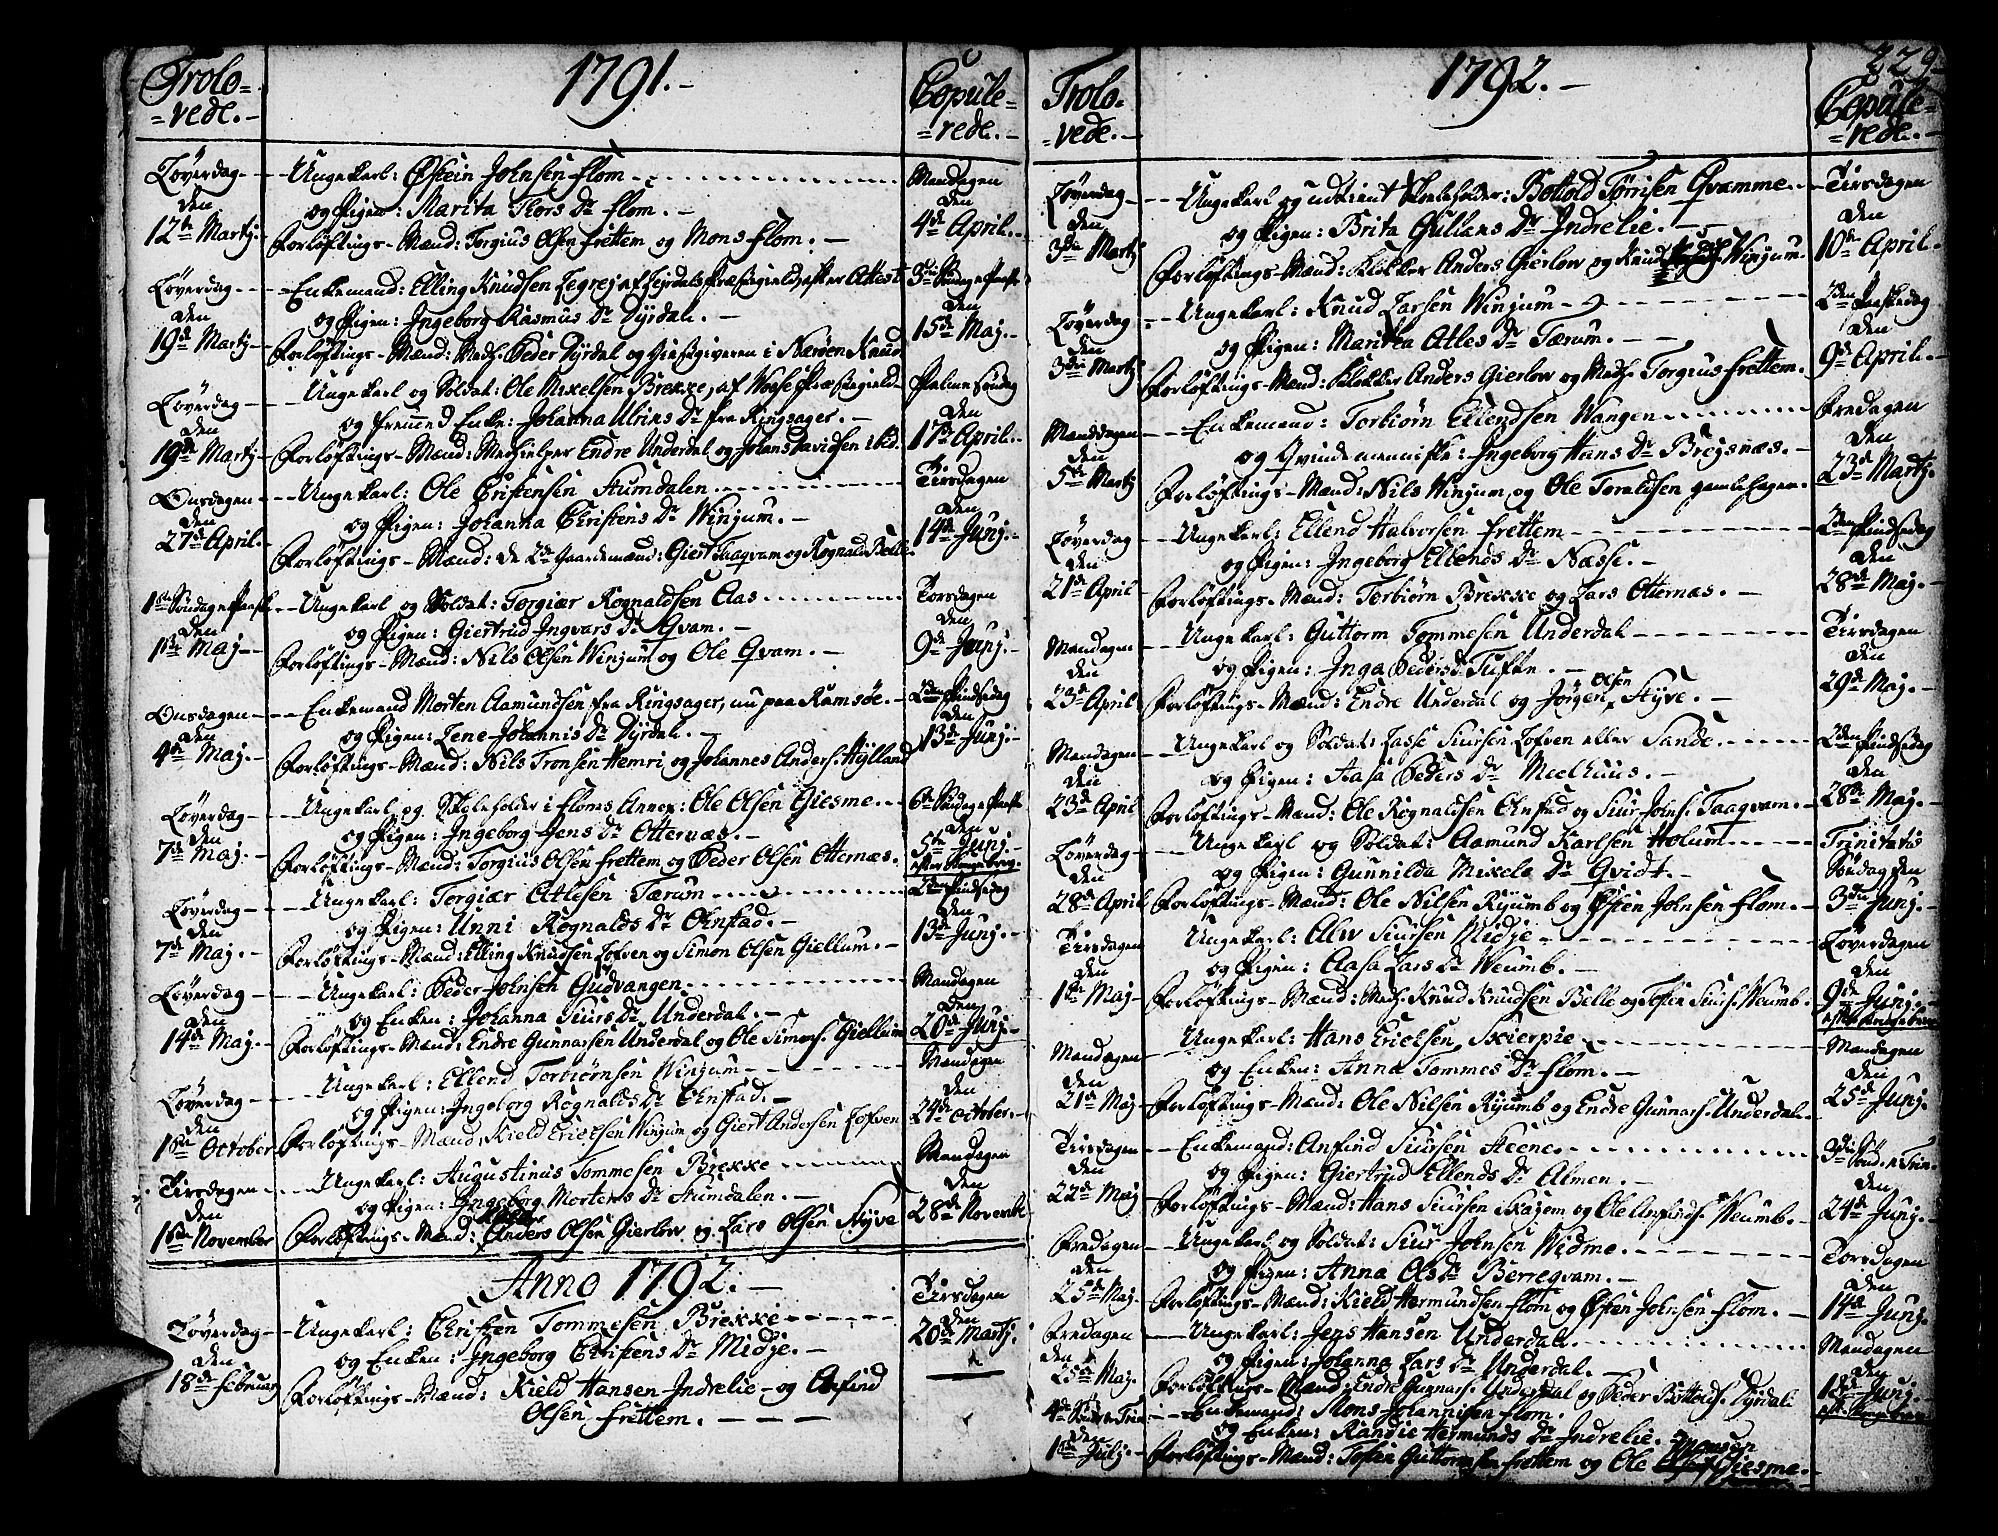 Trolo-
=vede.-
1791.-
Copule-
=rede.-
Löverdag
den
12te Martj.
Ungekarl: Østein Johnsen Flom
og Pigen: Marita Thors Dr Flom.-
Forløftings-Mænd: Torgius Olsen Frettem og Mons Flom.-
Mandagen
den
4de April.
Löverdag
den
19de Martj.
Enkemand: Elling Knudsen Zegrej af Lejrdals Præstegield, efter Attest
og Pigen: Ingeborg Rasmus Dr Dyrdal.-
Forløftings-Mænd: Meds. Peder Dyrdal og Giestgiveren i Nærøen Knud
3de Søndag e Paaske
den
15de Maj.-
Löverdag
den
19de Martj
Ungekarl og Soldat: Ole Mixelsen Brekke, af Wosse Præstegield
og fremmed Enke: Johanna Ulriks Dr fra Ringsager.-
Forløftings-Mænd: Medhielper Endre Underdal og Johan Davidsen ibid.
Palme Søndag
den
17de April.
Onsdagen
den
27de April.
Ungekarl: Ole Cristensen Stumdalen
og Pigen: Johanna Christens Dr Winjum.-
Forløftings-Mænd: De 2de Gaardemænd: Giert Taaqvam og Rognald Belle.
Tirsdagen
den
14de Junj.-
1ste Søndag e Paaske
den
1ste Maj
Ungekarl og Soldat: Torgiær Rognaldsen Aas
og Pigen: Giertrud Ingvars Dr Qvam.-
Forløftings-Mænd: Nils Olsen Winjum og Ole Qvam.-
Torsdagen
den
9de Junj.-
Onsdagen
den
4de Maj.
Enkemand Morten Aamundsen fra Ringsager, nu paa Ramsöe.
og Pigen: Lene Johannis Dr Dyrdal.-
Forløftings-Mænd: Nils Tronsen Hemri og Johannes Anders. Hylland
2den Pindsedag
den
13de Junj.-
Löverdag
den
7de Maj.
Ungekarl og Skoleholder i Floms Annex: Ole Olsen Giesme.
og Pigen: Ingeborg Jens Dr Otternæs.-
Forløftings-Mænd: Torgius Olsen Frettem og Peder Olsen Otternæs.
6te Søndag e Paaske
den
5te Junj.
efter Kongebrev.
Löverdag
den
7de Maj.
Ungekarl: Torgiær Attlesen Tærum
og Pigen: Unni Rognalds Dr Ohnstad.-
Forløftings-Mænd: Elling Knudsen Lofven og Simon Olsen Giellum.-
2den Pindsedag
den
13de Junj.
Löverdag
den
14de Maj.
Ungekarl: Peder Johnsen Gudvangen
og Enken: Johanna Siurs Dr Underdal.-
Forløftings-Mænd: Endre Gunnarsen Underdal og Ole Simons. Giellum
Mandagen
den
20de Junj.-
Löverdag
den
1ste October
Ungekarl: Ellend Torbiørnsen Winjum
og Pigen: Ingeborg Rognalds Dr Ohnstad.-
Forløftings-Mænd: Kield Ericksen Winjum og Giert Andersen Lofven
Mandagen
den
24de October.
Tirsdagen
den
1ste November
Ungekarl: Augustinus Tommesen Brekke
og Pigen: Ingeborg Mortens Dr Stumdalen.-
Klokker
Forløftings-Mænd: Anders Olsen Gierlow og Lars Olsen Styve
Mandagen
den
28de Novembr
Anno 1792.-
Löverdag
den
18de Februarj
Ungekarl: Christen Tommesen Brekke
og Enken: Ingeborg Christens Dr Midje.-
Forløftings-Mænd: Kield Hansen Indrelie og Anfind
Olsen Frettem.-
Tirsdagen
den
20de Martj.
Trolo-
vede.-
1792.-
229
Copule-
=rede.-
Löverdag
den
3die Martj
Ungekarl og udtient Skoleholder: Bottold Tørrisen Qvamme.
og Pigen: Brita Gullaks Dr Indrelie.-
Forløftings-Mænd: Klokker Anders Gierlow og Knud Winjum.
Tirsdagen
den
10de April.
Löverdag
den
3die Martj
Ungekarl: Knud Larsen Winjum
og Pigen: Maritta Atles Dr Tærum.-
Forløftings-Mænd: Klokker Anders Gierlow og Meds. Torgius Frettem.
2den Paaskedag
den
9de April.
Manddagen
den
5te Martj
Enkemand: Torbiørn Ellendsen Wangen
og Qvindemenniske: Ingeborg Hans Dr Breysnæs.-
Forløftings-Mænd: Nils Winjum og Ole Toraldsen gamle Hagen.
Fredagen
den
23de Martj.
Löverdag
den
21de April
Ungekarl: Ellend Halvorsen Frettem
og Pigen: Ingeborg Ellends Dr Næsse.-
Forløftings-Mænd: Torbiørn Brekke og Lars Otternæs.-
2den Pindsedag
den
28de Maj.
Mandagen
den
23de April
Ungekarl: Guttorm Tommesen Underdal
og Pigen: Inga Peders Dr Tufte.-
Olsen
Forløftings-Mænd: Endre Underdal og Jørgen Styve.-
Tirsdagen
den
29de Maj.
Mandagen
den
23de April
Ungekarl og Soldat: Lasse Siursen Lofven eller Sande.
og Pigen: Aasa Peders Dr Meelhuus.-
Forløftings-Mænd: Ole Rognaldsen Ohnstad og Siur Johns. Taaqvam.
2den Pindsedag
den
28de Maj.
Löverdag
den
28de April
Ungekarl og Soldat: Aamund Karlsen Holum
og Pigen: Gunnilda Mixels Dr Qvidt.-
Forløftings-Mænd: Ole Nilsen Ryumb og Østen Johnsen Flom.-
Trinitatis
Söndag den
3die Junj.
Tirsdagen
den
1ste Maj
Ungekarl: Alw Siursen Midje
og Pigen: Aasa Lars Dr Weumb.-
Forløftings-Mænd: Meds. Knud Knudsen Belle og Tosten Siurs. Weumb.
Löverdagen
den
9de Junj.
efter Kongebrev
Mandagen
den
21de Maj
Ungekarl: Hans Ericksen Skierpie
og Enken: Anna Tommes Dr Flom.-
Forløftings-Mænd: Ole Nilsen Ryumb og Endre Gunnars. Underdal.
Mandagen
den
25de Junj.
Tirsdagen
den
22de Maj
Enkemand: Anfind Siursen Steene
og Pigen: Giertrud Ellends Dr Almen.-
Forløftings-Mænd: Hans Siursen Skajem og Ole Anfinds. Weumb.-
3die Sönd. e Trin.
den
24de Junj.
Fredagen
den
25de Maj.
Ungekarl og Soldat: Siur Johnsen Widme.
og Pigen: Anna Ols Dr Berreqvam.-
Forløftings-Mænd: Kield Hermundsen Flom og Østen Johnsen Flom.-
Torsdagen
den
14de Junj.
Fredagen
den
25de Maj.
Ungekarl: Jens Hansen Underdal
og Pigen: Johanna Lars Dr Underdal.-
Forløftings-Mænd: Endre Gunnars. Underdal og Peder Bottolds. Dyrdal
Mandagen
den
Junj.
eft. Kongebrev
4de Sönd. e Trin
den
1ste Julj.
Enkemand: Mons Johannisen Flom.
og Enken: Randie Hermunds Dr Indrelie.
Monsen
Forløftings-Mænd: Tosten Guttormsen Frettem og Ole Giesme.-